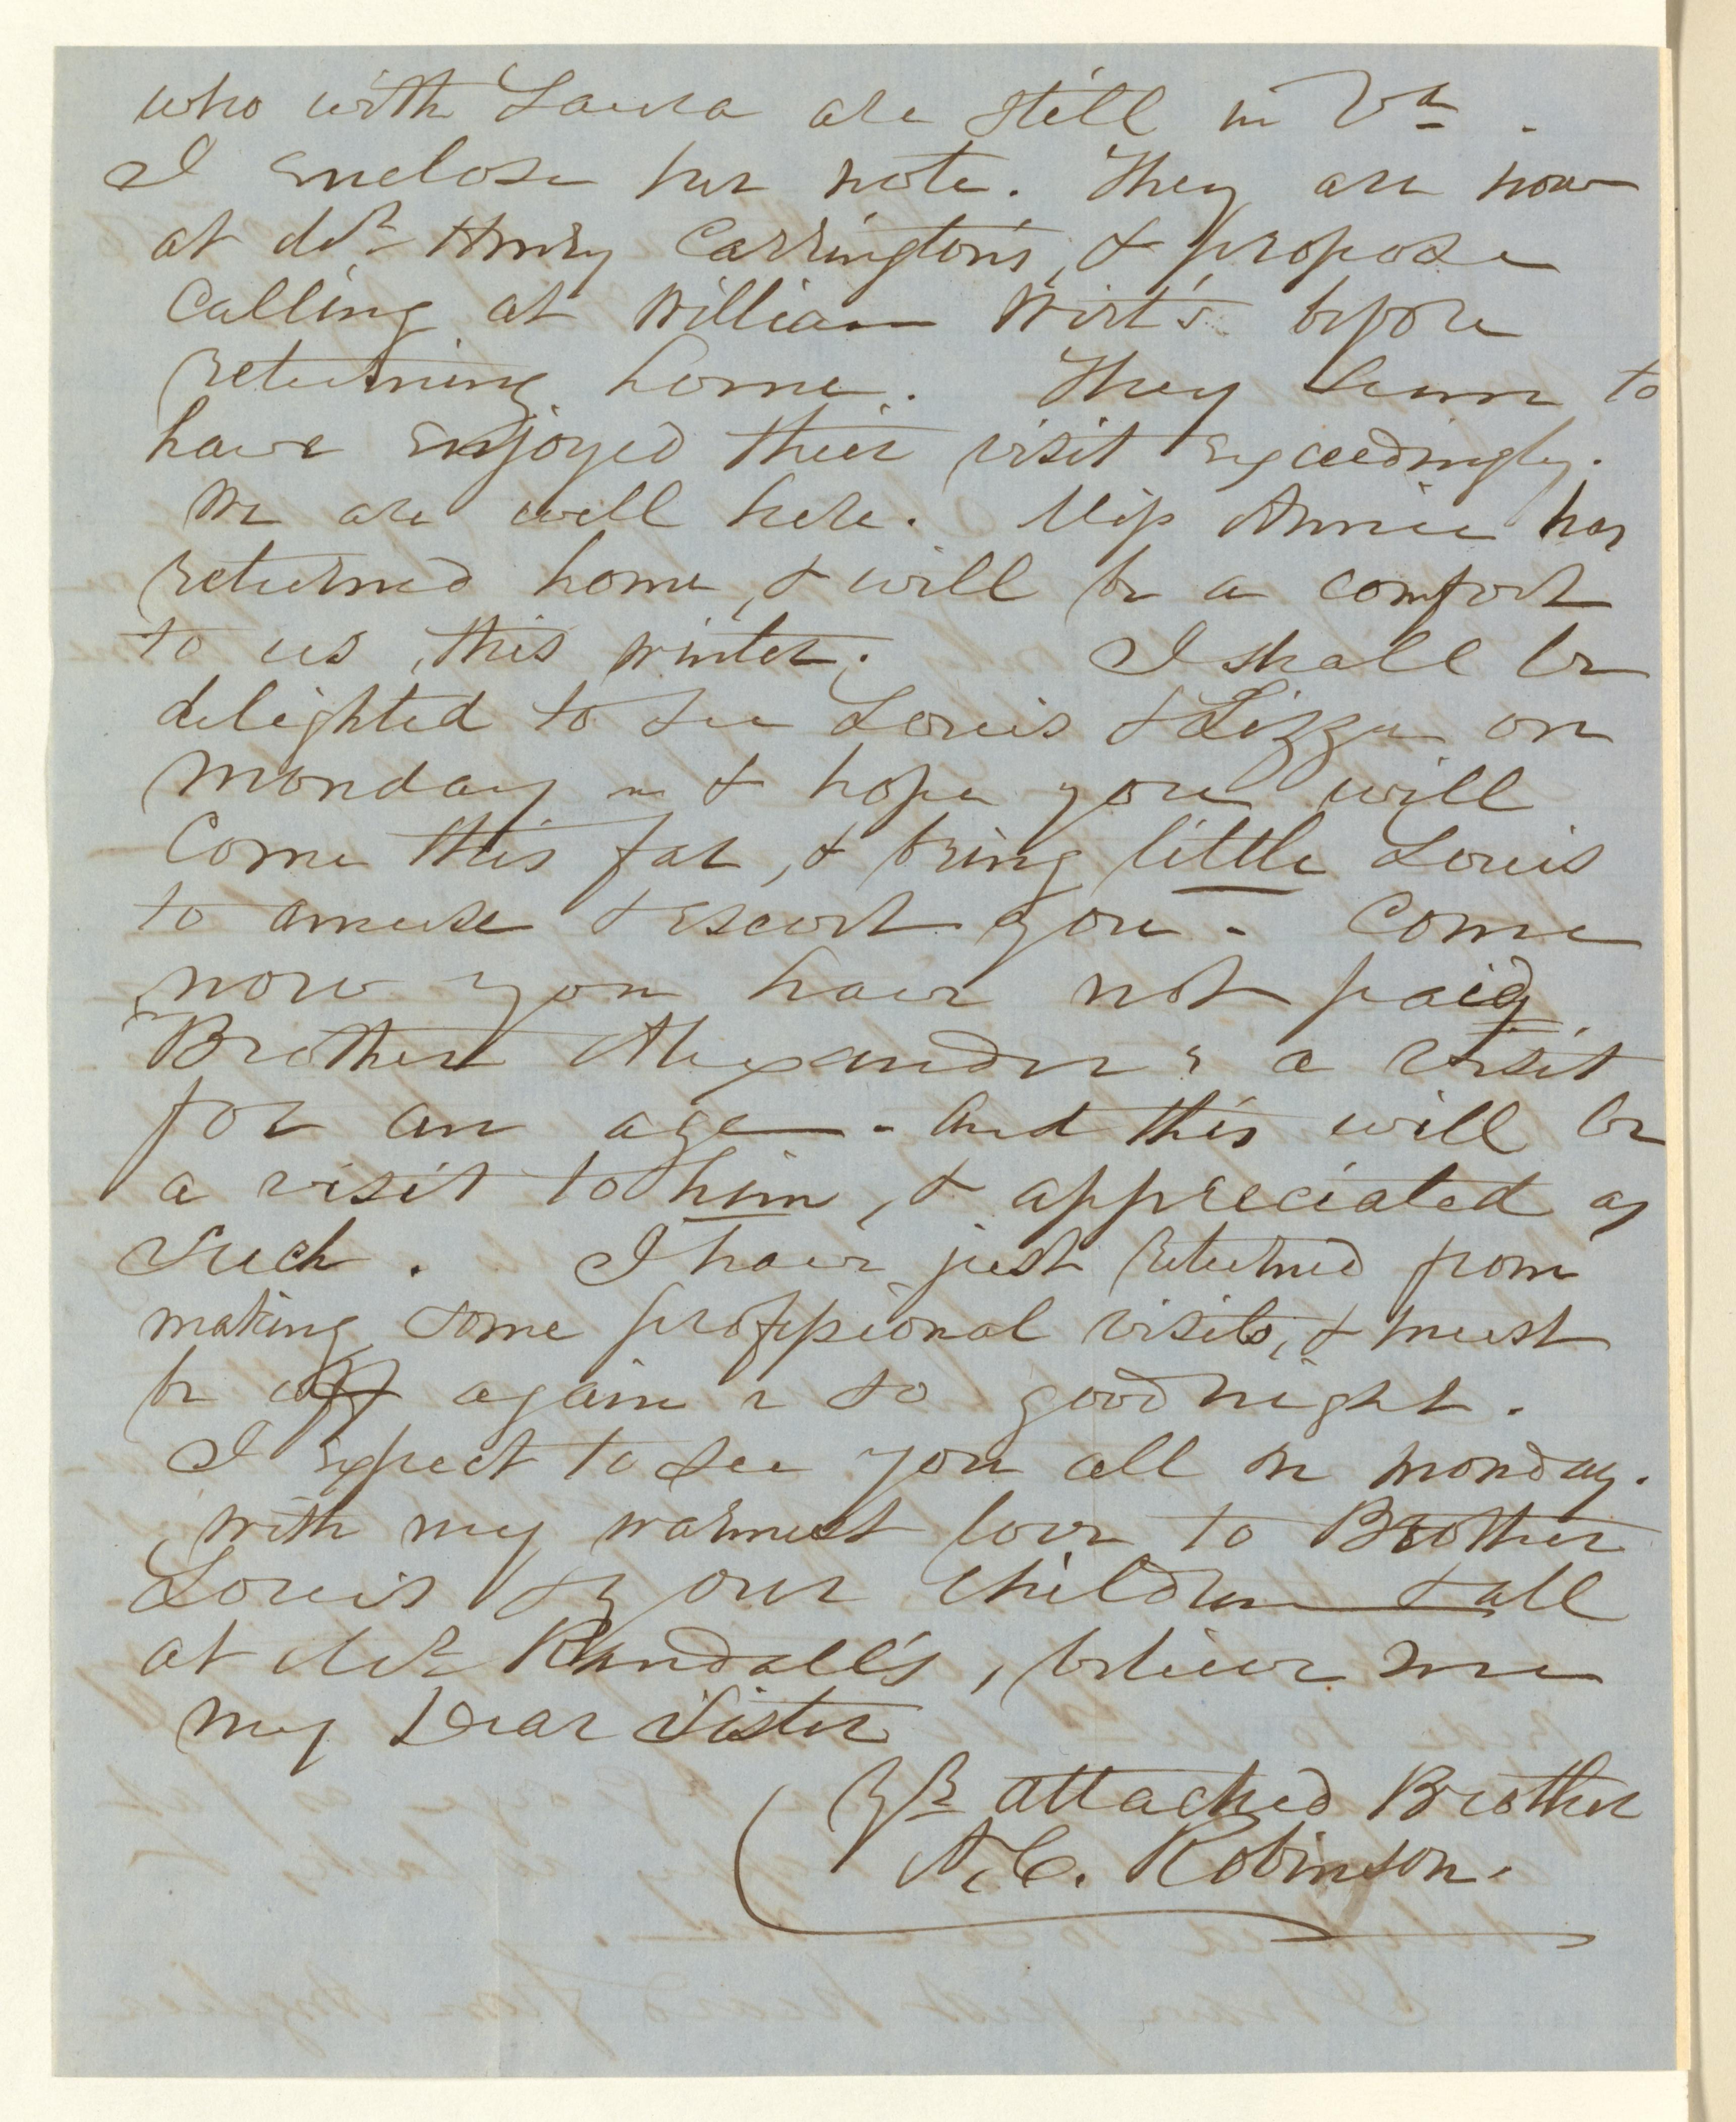 who with Laura are still in Va.
I enclose her note. They are now
at Mr Henry Carrington's, & propose
calling at William Wirt's before
returning home. They seem to
have enjoyed their visit exceedingly.
We are well here. Miss Annie has
returned home, & will be a comfort
to us, this winter. I shall be
delighted to see Louis & Lizzie on
Monday - & hope you will
come this far, & bring little Louis
to amuse & escort you - Come
now you have not paid
Brother Alexander a visit
for an age - and this will be
a visit to him, & appreciated as
such. I have just returned from
making some professional visits, & must
be off again & so good night.
I expect to see you all on Monday.
With my warmest love to Brother
Louis & your children & all
at Mr Randall's, believe me
my Dear Sister
Yr attached Brother
A. C. Robinson.